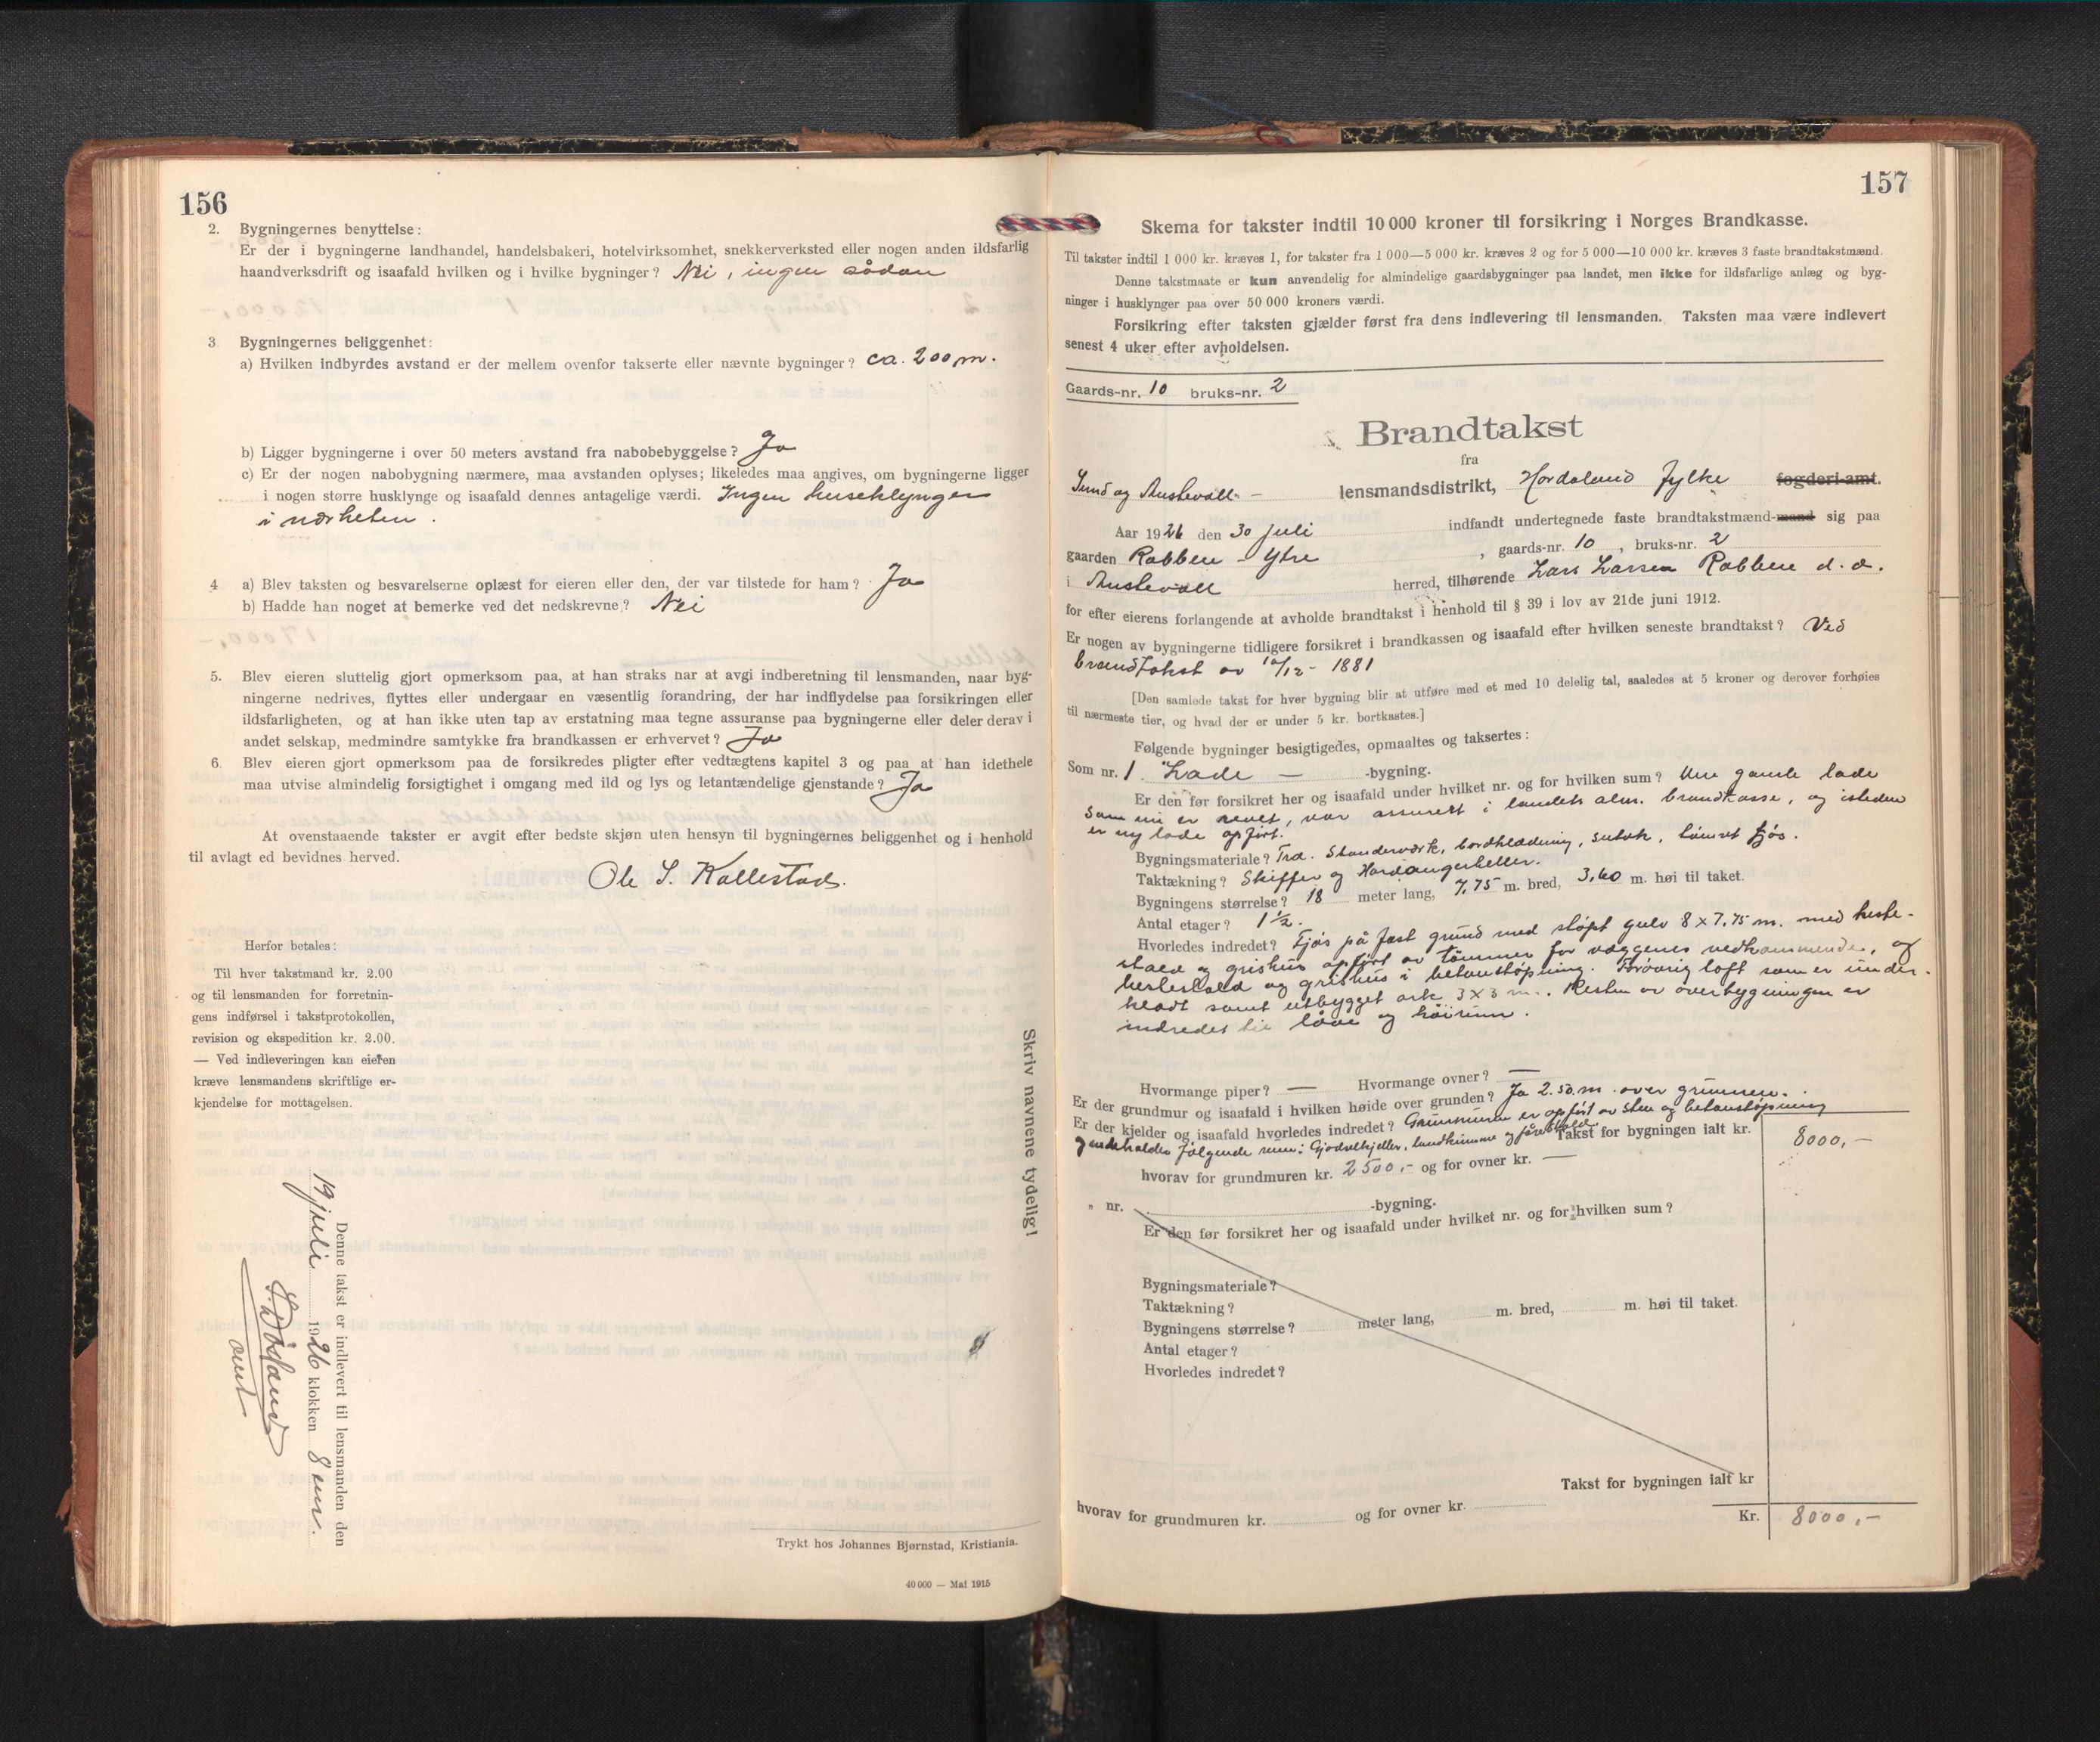 156
2. Bygningernes benyttelse:
Er der i bygningerne landhandel, handelsbakeri, hotelvirksomhet, snekkerverksted eller nogen anden ildsfarlig
haandverksdrift og isaafald hvilken og i hvilke bygninger? Nei, ingen sådan
3. Bygningernes beliggenhet:
a) Hvilken indbyrdes avstand er der mellem ovenfor takserte eller nævnte bygninger? ca. 200 m.
b) Ligger bygningerne i over 50 meters avstand fra nabobebyggelse? Ja
c) Er der nogen nabobygning nærmere, maa avstanden oplyses; likeledes maa angives, om bygningerne ligger
i nogen større husklynge og isaafald dennes antagelige værdi. Ingen huseklynger
i nærheten.
4 a) Blev taksten og besvarelserne oplæst for eieren eller den, der var tilstede for ham? Ja
b) Hadde han noget at bemerke ved det nedskrevne? Nei
5. Blev eieren sluttelig gjort opmerksom paa, at han straks har at avgi indberetning til lensmanden, naar byg-
ningerne nedrives, flyttes eller undergaar en væsentlig forandring, der har indflydelse paa forsikringen eller
ildsfarligheten, og at han ikke uten tap av erstatning maa tegne assuranse paa bygningerne eller deler derav i
andet selskap, medmindre samtykke fra brandkassen er erhvervet? Ja
6. Blev eieren gjort opmerksom paa de forsikredes pligter efter vedtægtens kapitel 3 og paa at han idethele
maa utvise almindelig forsigtighet i omgang med ild og lys og letantændelige gjenstande? Ja
At ovenstaaende takster er avgit efter bedste skjøn uten hensyn til bygningernes beliggenhet og i henhold
til avlagt ed bevidnes herved.
Ole S. Kallestad.
Herfor betales:
Til hver takstmand kr. 2.00
og til lensmanden for forretnin-
gens indførsel i takstprotokollen,
revision og ekspedition kr. 2.00.
— Ved indleveringen kan eieren
kræve lensmandens skriftlige er-
kjendelse for mottagelsen.
Skriv navnene tydelig!
Denne takst er indlevert til lensmanden den
19 juli 1926 klokken 8 em.
Trykt hos Johannes Bjørnstad, Kristiania.
40 000 — Mai 1915
157
Skema for takster indtil 10 000 kroner til forsikring i Norges Brandkasse.
Til takster indtil 1 000 kr. kræves 1, for takster fra 1 000—5 000 kr. kræves 2 og for 5 000—10 000 kr. kræves 3 faste brandtakstmænd.
Denne takstmaate er kun anvendelig for almindelige gaardsbygninger paa landet, men ikke for ildsfarlige anlæg og byg-
ninger i husklynger paa over 50 000 kroners værdi.
Forsikring efter taksten gjælder først fra dens indlevering til lensmanden. Taksten maa være indlevert
senest 4 uker efter avholdelsen.
Gaards-nr. 10 bruks-nr. 2
Brandtakst
fra
Sund og Austevoll - lensmandsdistrikt, Hordaland fylke fogderi-amt.
Aar 1926 den 30 juli indfandt undertegnede faste brandtakstmænd-mand sig paa
gaarden Rabben - Ytre, gaards-nr. 10, bruks-nr. 2
i Austevoll herred, tilhørende Lars Larsen Rabben d. e.
for efter eierens forlangende at avholde brandtakst i henhold til § 39 i lov av 21de juni 1912.
Er nogen av bygningerne tidligere forsikret i brandkassen og isaafald efter hvilken seneste brandtakst? Ved
brandtakst av 10/12 - 1881
[Den samlede takst for hver bygning blir at utføre med et med 10 delelig tal, saaledes at 5 kroner og derover forhøies
til nærmeste tier, og hvad der er under 5 kr. bortkastes.]
Følgende bygninger besigtigedes, opmaaltes og taksertes:
Som nr. 1. Lade — -bygning.
Er den før forsikret her og isaafald under hvilket nr. og for hvilken sum? Den gamle lade
som nu er revet, var assurert i landets alm. brandkasse, og isteden
er ny lade opført.
Bygningsmateriale? Træ. Standerværk, bordklædning, sutak, tømret fjøs.
Taktækning? Skiffer og Hardangerheller.
Bygningens størrelse? 18 meter lang, 7,75 m. bred, 3,60 m. høi til taket.
Antal etager? 1½.
Hvorledes indredet? Fjøs på fast grund med støpt gulv 8 x 7,75 m. med heste-
stald og grishus opført av tømmer for væggenes vedkommende, og
hestestald og grishus i betonstøpning. Forøvrig loft som er under-
kledt samt utbygget ark 3 x 3 m. Resten av overbygningen er
indredet til låve og høirum.
Hvormange piper? — Hvormange ovner? —
Er der grundmur og isaafald i hvilken høide over grunden? Ja 2.50 m. over grunnen.
Er der kjelder og isaafald hvorledes indredet? Grunmuren er opført av sten og betonstøpning
og indeholder følgende rum: Gjødselkjeller,
Takst for bygningen ialt kr. 8000,-
hvorav for grundmuren kr. 2500,- og for ovner kr. —
„ nr. -bygning.
Er den før forsikret her og isaafald under hvilket nr. og for hvilken sum?
Bygningsmateriale?
Taktækning?
Bygningens størrelse? meter lang, m. bred, m. høi til taket.
Antal etager?
Hvorledes indredet?
Takst for bygningen ialt kr
hvorav for grundmuren kr. og for ovner kr.
Kr. 8000,-